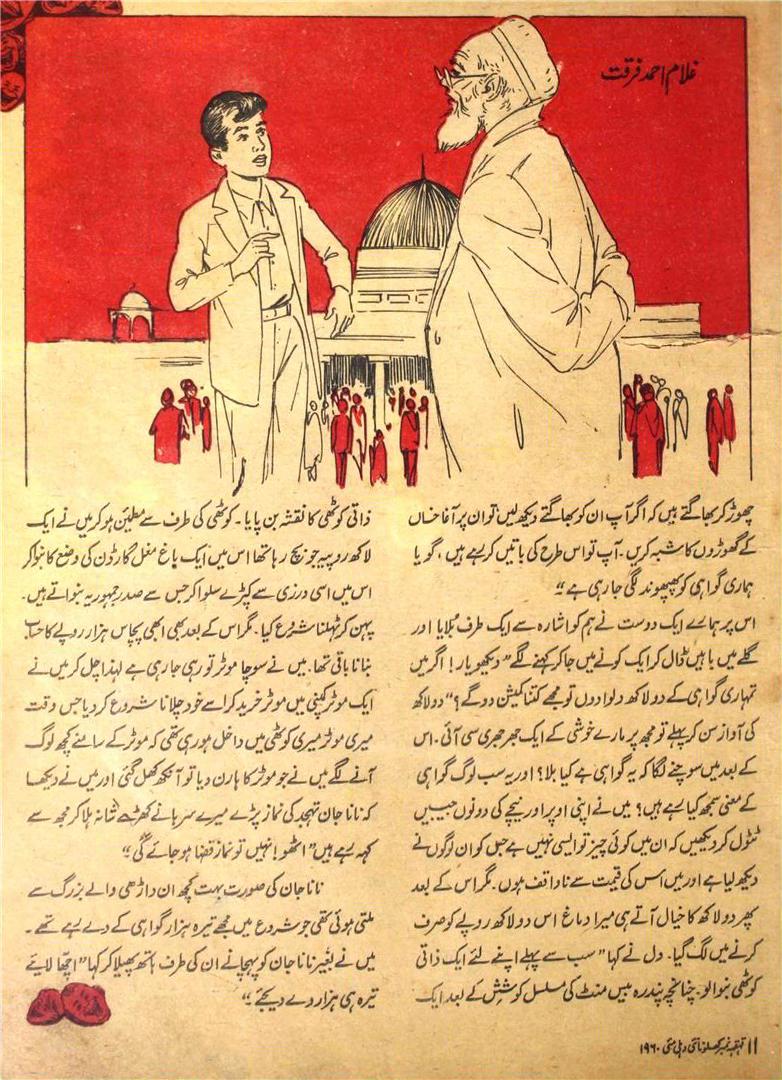 غلام احمد فرقت
چھوڑ کر بھاگتے ہیں کہ اگر آپ ان کو بھاگتے دیکھ لیں تو ان پر آغا خاں
کے گھوڑوں کا شبہ کریں۔ آپ تو اس طرح کی باتیں کر رہے ہیں، گویا
ہماری گواہی کو پھپھوند لگی جا رہی ہے"
اس پر ہمارے ایک دوست نے ہم کو اشارہ سے ایک طرف بُلایا اور
گلے میں باہیں ڈال کر ایک کونے میں جا کر کہنے لگے "دیکھو یار! اگر میں
تمہاری گواہی کے دو لاکھ دلوا دوں تو مجھے کتنا کمیشن دو گے؟" دو لاکھ
کی آواز سن کر پہلے تو مجھ پر مارے خوشی کے ایک جھرجھری سی آئی۔ اس
کے بعد میں سوچنے لگا کہ یہ گواہی ہے کیا بلا؟ اور یہ سب لوگ گواہی
کے معنی سمجھ کیا رہے ہیں؟ میں نے اپنی اوپر اور نیچے کی دونوں جیبیں
ٹٹول کر دیکھیں کہ ان میں کوئی چیز تو ایسی نہیں ہے جس کو ان لوگوں نے
دیکھ لیا ہے اور میں اس کی قیمت سے ناواقف ہوں۔ مگر اس کے بعد
پھر دو لاکھ کا خیال آتے ہی میرا دماغ اس دو لاکھ روپے کو صرف
کرنے میں لگ گیا۔ دل نے کہا "سب سے پہلے اپنے لئے ایک ذاتی
کوٹھی بنوا لو۔ چنانچہ پندرہ بیس منٹ کی مسلسل کوشش کے بعد ایک
ذاتی کوٹھی کا نقشہ بن پایا۔ کوٹھی کی طرف سے مطمئن ہو کر میں نے ایک
لاکھ روپیہ جو بچ رہا تھا اس میں ایک باغ مغل گارڈن کی وضع کا بنوا کر
اس میں اسی درزی سے کپڑے سلوا کر جس سے صدر جمہوریہ بنواتے ہیں۔
پہن کر ٹہلنا شروع کیا۔ مگر اس کے بعد بھی ابھی پچاس ہزار روپے کا حساب
بنانا باقی تھا۔ میں نے سوچا موٹر تو رہی جا رہی ہے لہٰذا چل کر میں نے
ایک موٹر کمپنی میں موٹر خرید کر اسے خود چلانا شروع کر دیا جس وقت
میری موٹر میری کوٹھی میں داخل ہو رہی تھی کہ موٹر کے سامنے کچھ لوگ
آنے لگے میں نے جو موٹر کا ہارن دیا تو آنکھ کھل گئی اور میں نے دیکھا
کہ نانا جان تہجد کی نماز پڑے میرے سرہانے کھڑے شانہ ہلا کر مجھ سے
کہہ رہے ہیں "اٹھو! نہیں تو نماز قضا ہو جائے گی"
نانا جان کی صورت بہت کچھ ان داڑھی والے بزرگ سے
ملتی ہوئی تھی جو شروع میں مجھے تیرہ ہزار گواہی کے دے رہے تھے۔
میں نے بغیر نانا جان کو پہچانے ان کی طرف ہاتھ پھیلا کر کہا "اچھا لایئے
تیرہ ہی ہزار دے دیجئے"
۱۱ قہقہہ نمبر کھلونا نئی دہلی مئی ۱۹۶۰